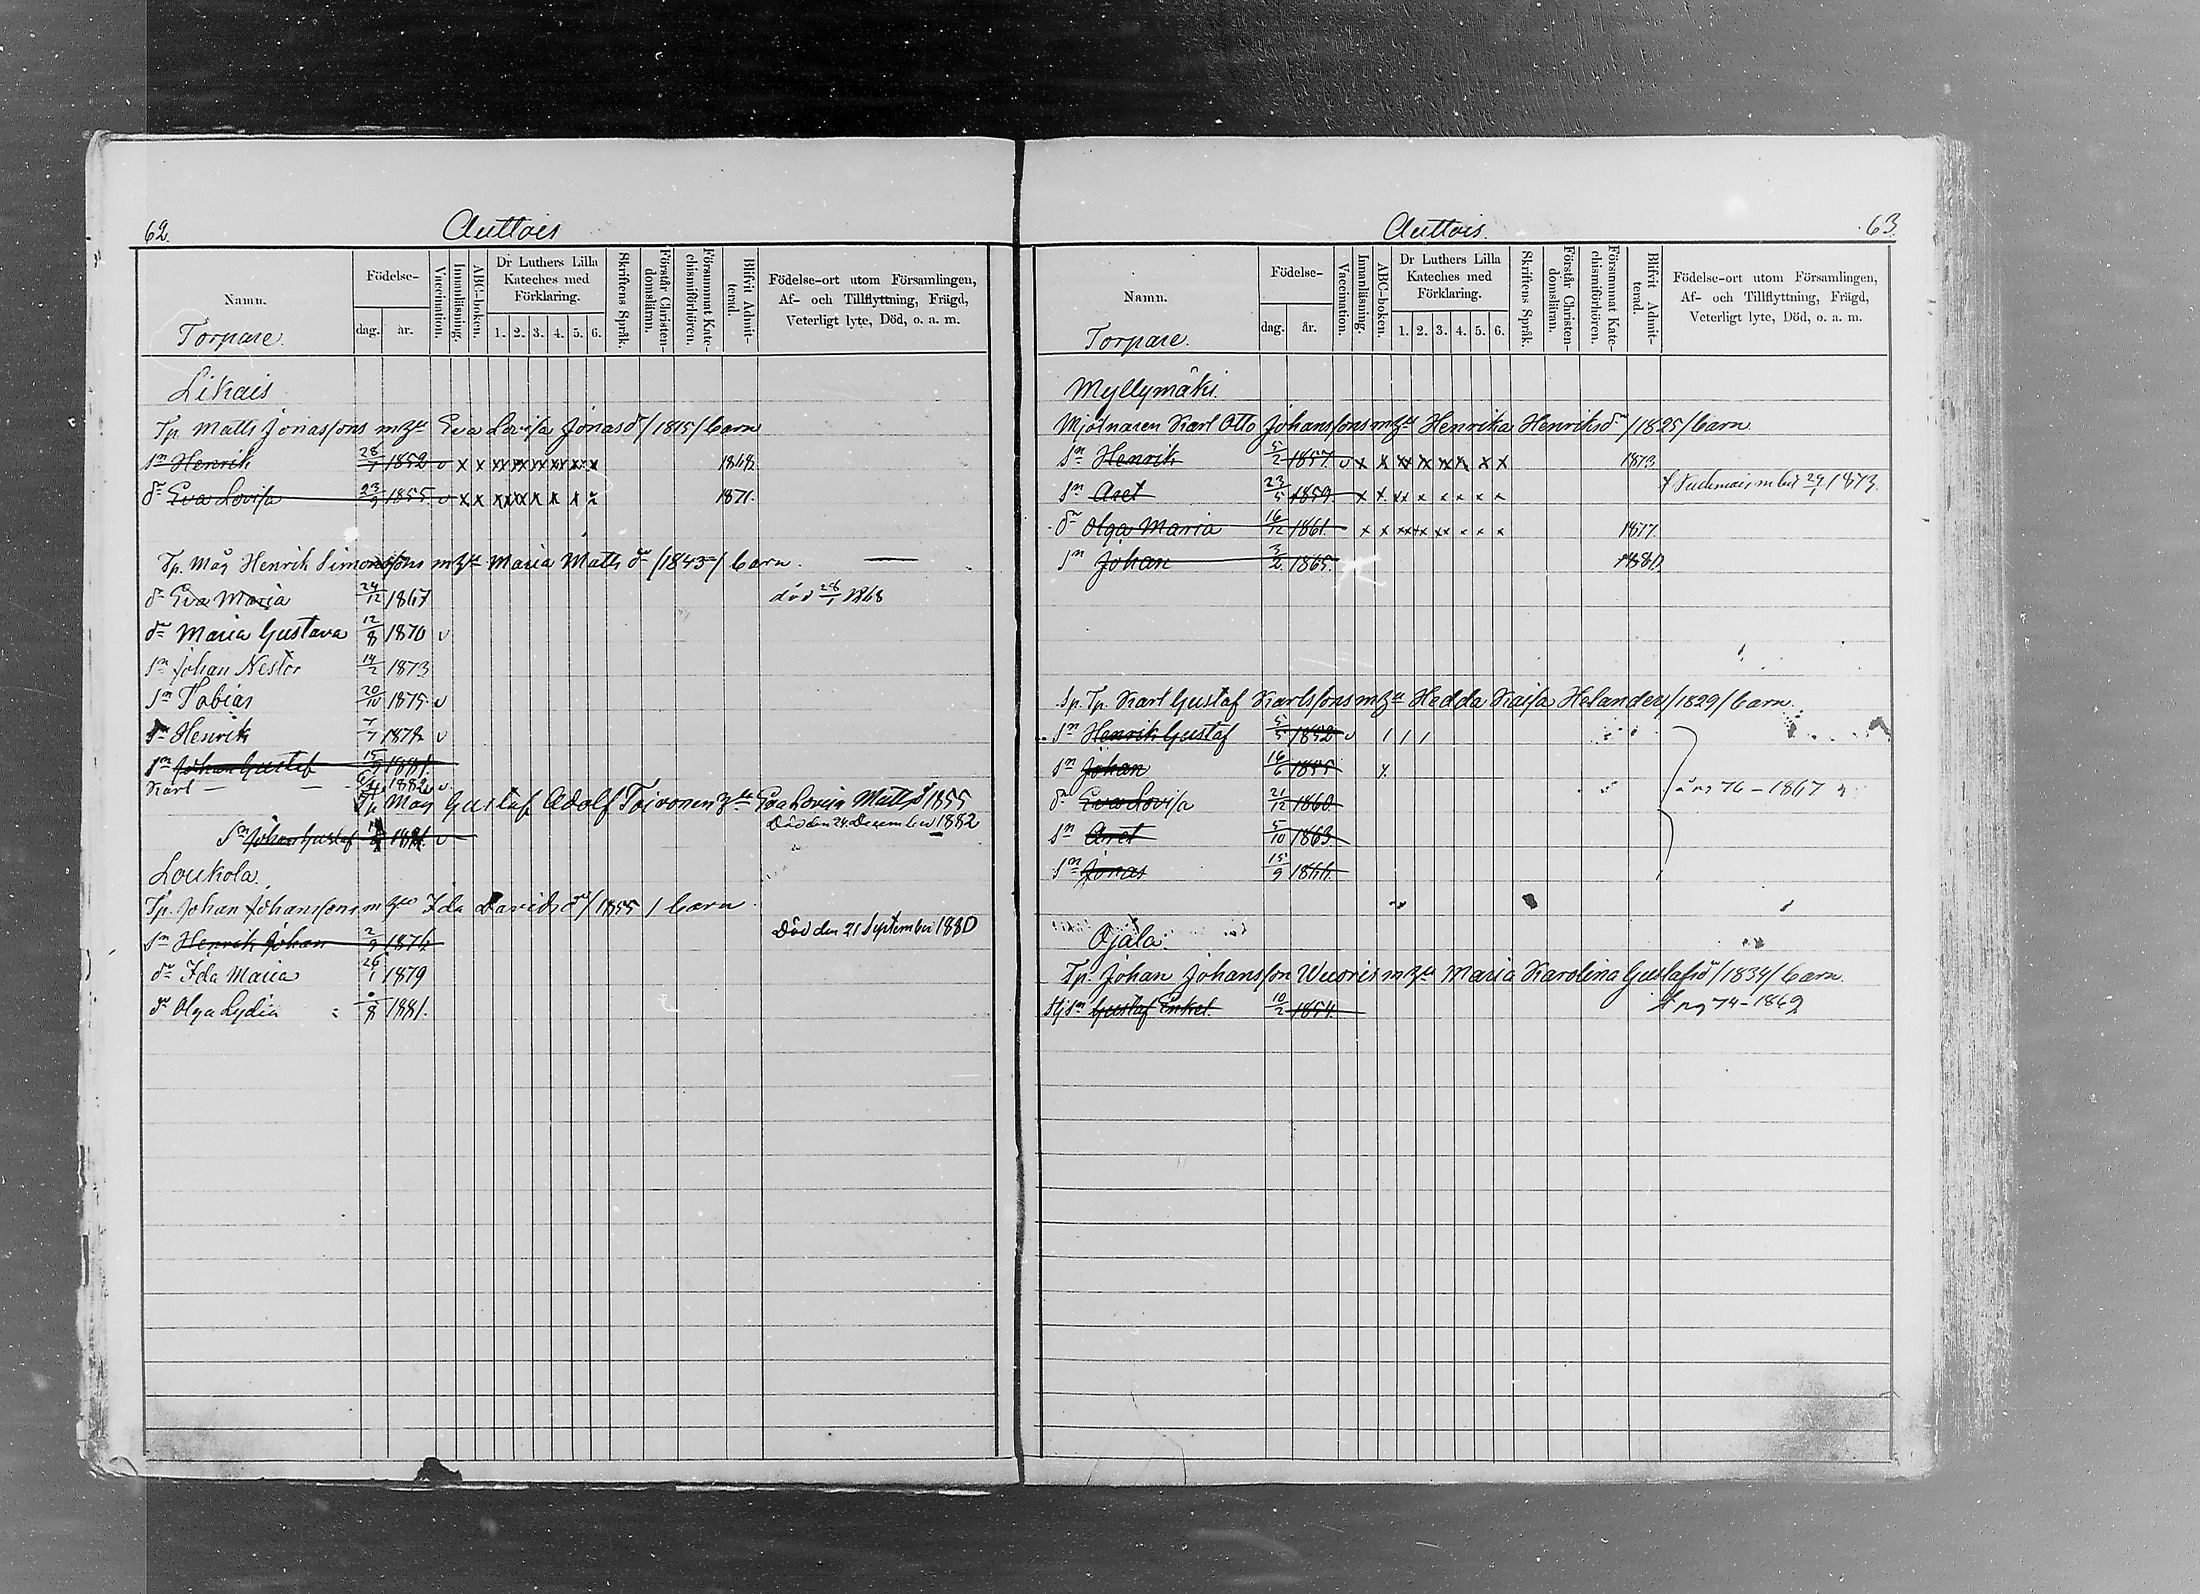 62.
Auttois
Namn.
Födelse-
dag.
år.
Vaccination.
Innanläsning.
ABC-boken.
Dr Luthers Lilla
Kateches med
Förklaring.
1. 2. 3. 4. 5. 6.
Skriftens Språk.
Förstår Christen-
domsläran.
Försummat Kate-
chismiförhören.
Blifvit Admit-
terad.
Födelse-ort utom Församlingen,
Af- och Tillflyttning, Frägd,
Veterligt lyte, Död, o. a. m.
Torpare.
Likais
Tp. Matts Jonassons m Eva Lovisa Jonasdr /1815/ barn
Sn Henrik 28/1 1852 v x x xx xx xx xx xx x 1868
dr Eva Lovisa 23/9 1855 v x x xx xx x x x x 1871.
Tp. Måg Henrik Simonssons m Maria Matts dr /1843/ barn. —
dr Eva Maria 24/12 1867 död 28/1 1868
dr Maria Gustava 12/8 1870 v
Sn Johan Nestor 14/2 1873
Sn Tobias 20/10 1875 v
Sn Henrik 7/7 1878 v
Sn Johan Gustaf 15/9 1881.
Karl — — 1882 v
Tp. Måg Gustaf Adolf Toivonen Eva Lovisa Matts dr 1855
Sn Johan Gustaf 1881. v Död den 24 December 1882
Loukola.
Tp. Johan Johanssons m Ida Davidsdr /1855/ barn
Sn Henrik Johan 2/9 1876 Död den 21 September 1880
dr Ida Maria 26/1 1879
dr Olga Lydia 8 1881.
63.
Auttois.
Namn.
Födelse-
dag.
år.
Vaccination.
Innanläsning.
ABC-boken.
Dr Luthers Lilla
Kateches med
Förklaring.
1. 2. 3. 4. 5. 6.
Skriftens Språk.
Förstår Christen-
domsläran.
Försummat Kate-
chismiförhören.
Blifvit Admit-
terad.
Födelse-ort utom Församlingen,
Af- och Tillflyttning, Frägd,
Veterligt lyte, Död, o. a. m.
Torpare.
Myllymäki.
Mjölnaren Karl Otto Johanssons m Henrika Henriksdr /1825/ barn
Sn Henrik 5/2 1857. v x x xx xx xx x x x 1873
Sn Aret 23/5 1859. x x xx x x x x x 1873.
dr Olga Maria 16/12 1861. x x xx xx xx x x x 1877.
Sn Johan 1865. 1880.
Sp. Tp. Karl Gustaf Karlssons m Hedda Kaisa Helander /1829/ barn.
Sn Henrik Gustaf 5/5 1852 v / / /
Sn Johan 16/6 1855
dr Eva Lovisa 21/12 1860 76 – 1867
Sn Aret 5/10 1863.
Sn Jonas 15/9 1866
Ojala.
Tp. Johan Johansson Wuoris m Maria Karolina Gustafsdr /1834/ barn.
Stjsn Gustaf Enkel. 10/2 1854. 74 – 1869